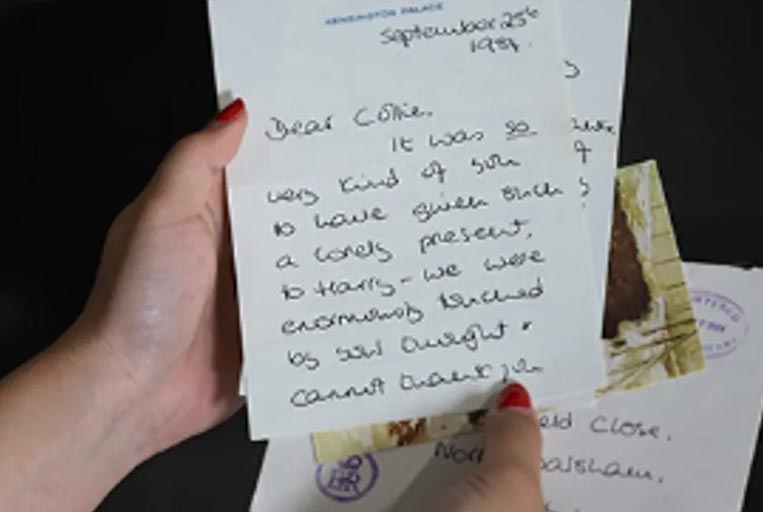 KENSINGTON PALACE
September 25th
1984.
Dear Collie,
It was so
very kind of you
to have given such
a lovely present,
to Harry - we were
enormously touched
by your thought &
cannot thank you
eld Close,
Walsham,